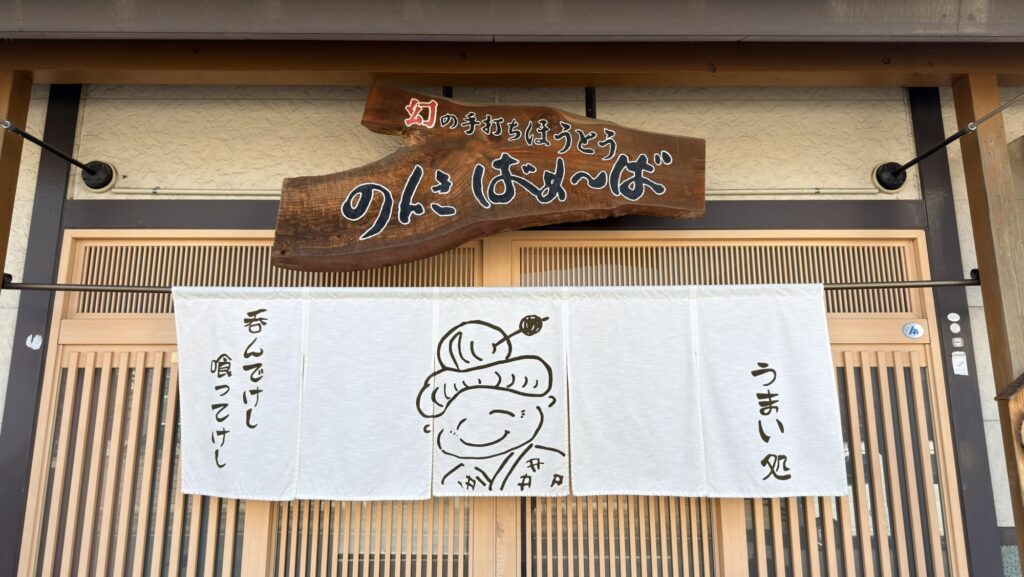 幻の手打ちほうとう
のんきばぁ〜ば
うまい処
呑んでけし
喰ってけし